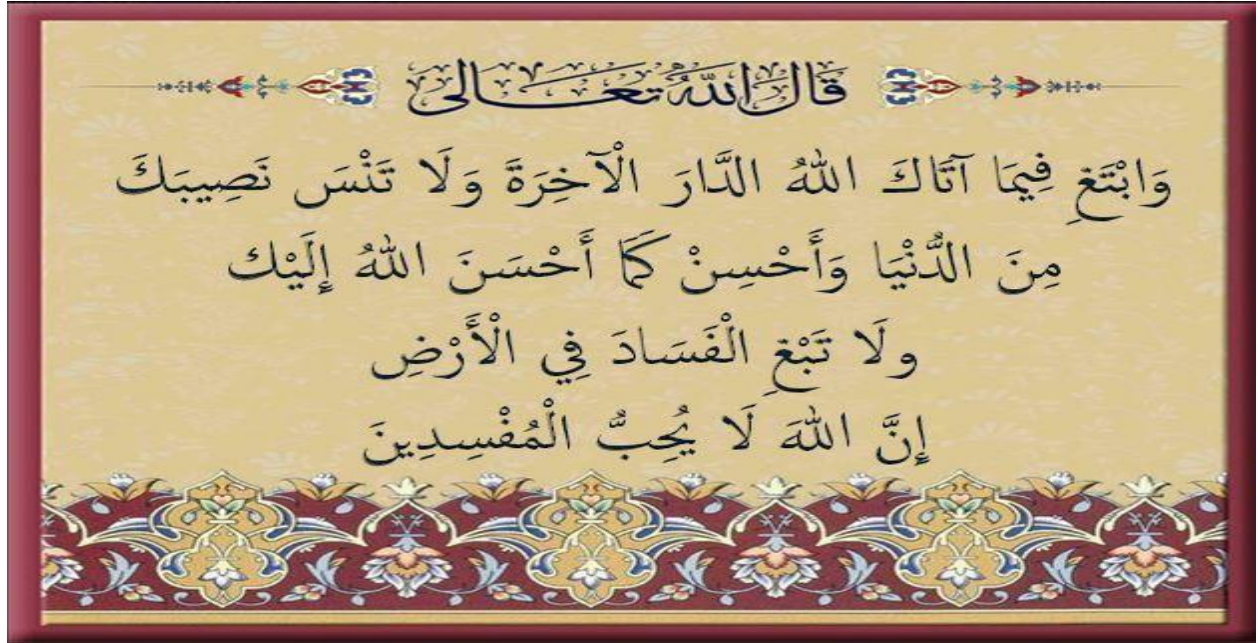 قَالَ اللهُ تَعَالَى
وَابْتَغِ فِيمَا آتَاكَ اللهُ الدَّارَ الْآخِرَةَ وَلَا تَنْسَ نَصِيبَكَ
مِنَ الدُّنْيَا وَأَحْسِنْ كَمَا أَحْسَنَ اللهُ إِلَيْك
ولَا تَبْغِ الْفَسَادَ فِي الْأَرْضِ
إِنَّ اللهَ لَا يُحِبُّ الْمُفْسِدِينَ